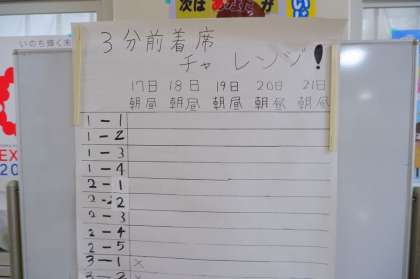 次は
が
いのち輝く未
3分前着席
チャレンジ!
17日 18日 19日 20日 21日
朝昼 朝昼 朝昼 朝昼 朝昼
1-1
1-2
1-3
1-4
2-1
2-2
2-3
2-4
2-5
3-1 ×
3-2 ×
EX
20